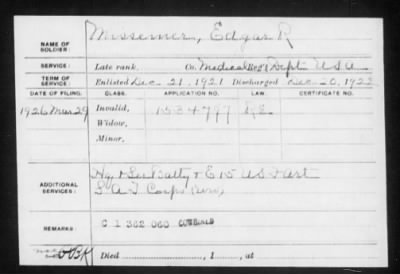 NAME OF SOLDIER: Missemer, Edgar R
SERVICE: Late rank, Co. Medical Reg't Dept. U S A
TERM OF SERVICE: Enlisted Dec. 21, 1921 Discharged Dec. 20, 1922
DATE OF FILING. CLASS. APPLICATION NO. LAW. CERTIFICATE NO.
1926 Mar 29 Invalid, 1534797 R.E.
Widow,
Minor,
ADDITIONAL SERVICES: Hq. & Ser. Batty & E 15 U S F Art
REMARKS C 1 362 060
Died , 1 , at